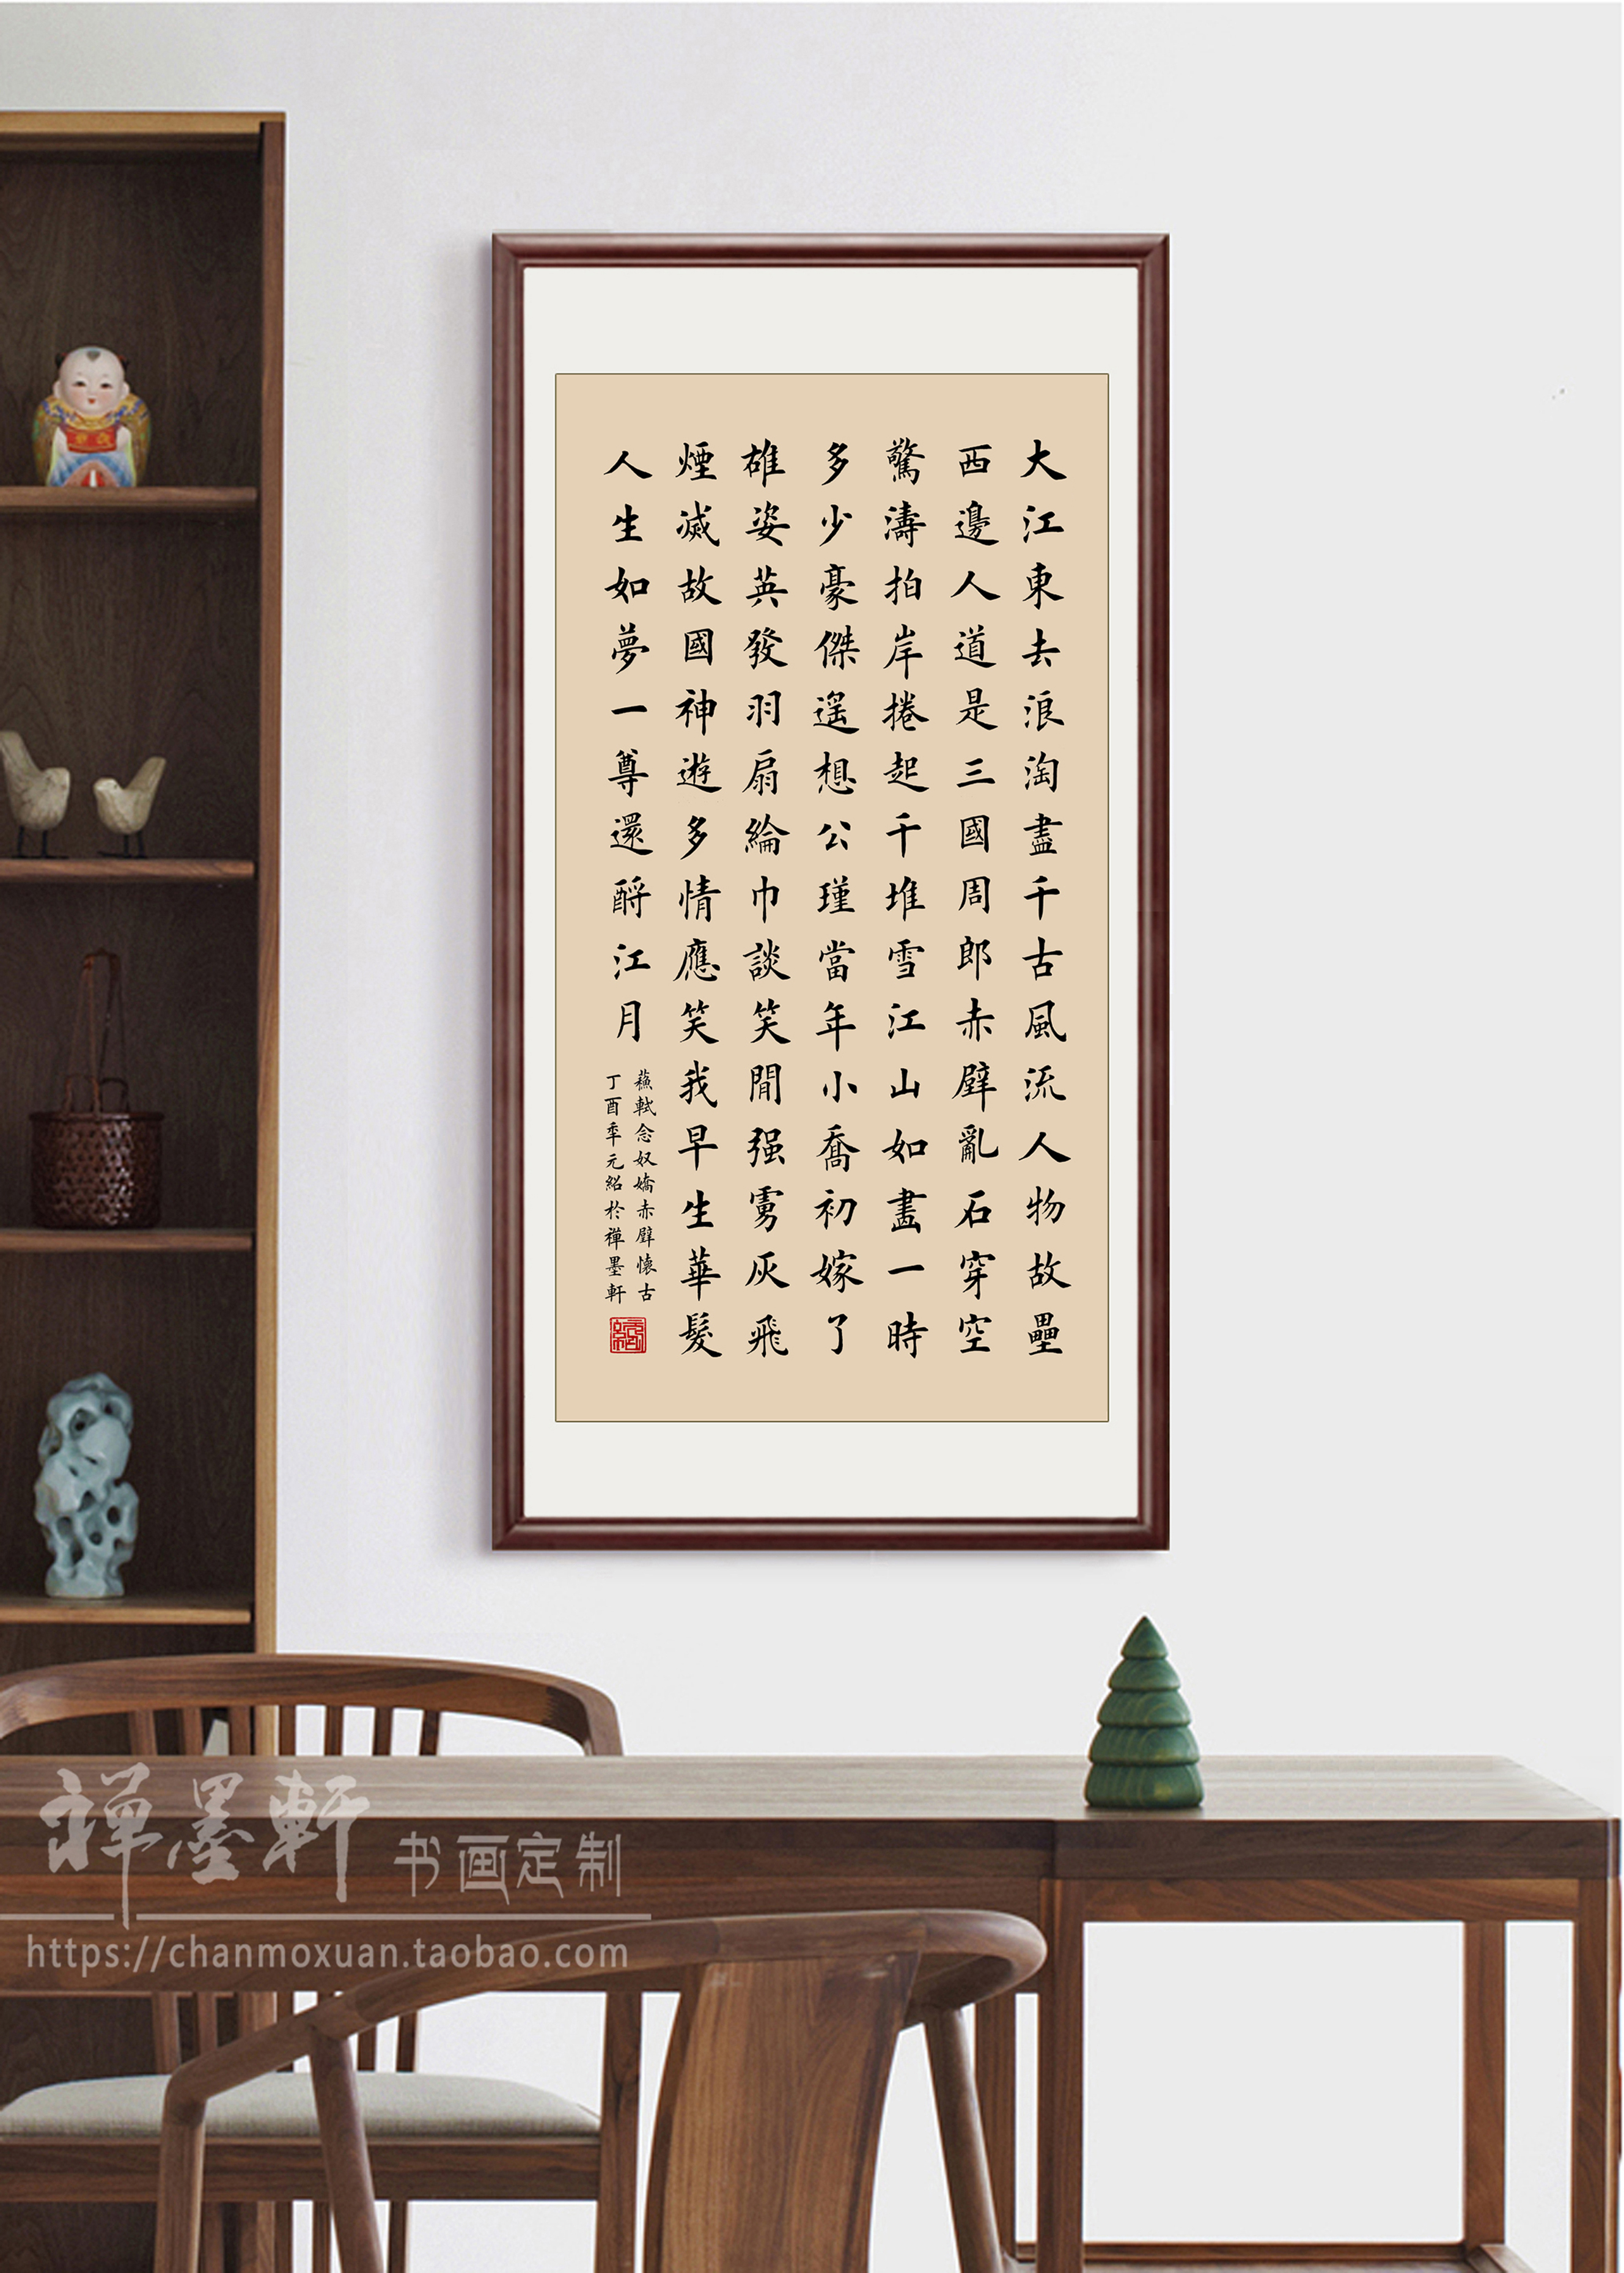 大江東去浪淘盡千古風流人物故壘
西邊人道是三國周郎赤壁亂石穿空
驚濤拍岸捲起千堆雪江山如畫一時
多少豪傑遥想公瑾當年小喬初嫁了
雄姿英發羽扇綸巾談笑間强虜灰飛
煙滅故國神遊多情應笑我早生華髮
人生如夢一尊還酹江月
蘇軾念奴嬌赤壁懷古
丁酉年元紹於禪墨軒
禪墨軒 书画定制
https://chanmoxuan.taobao.com